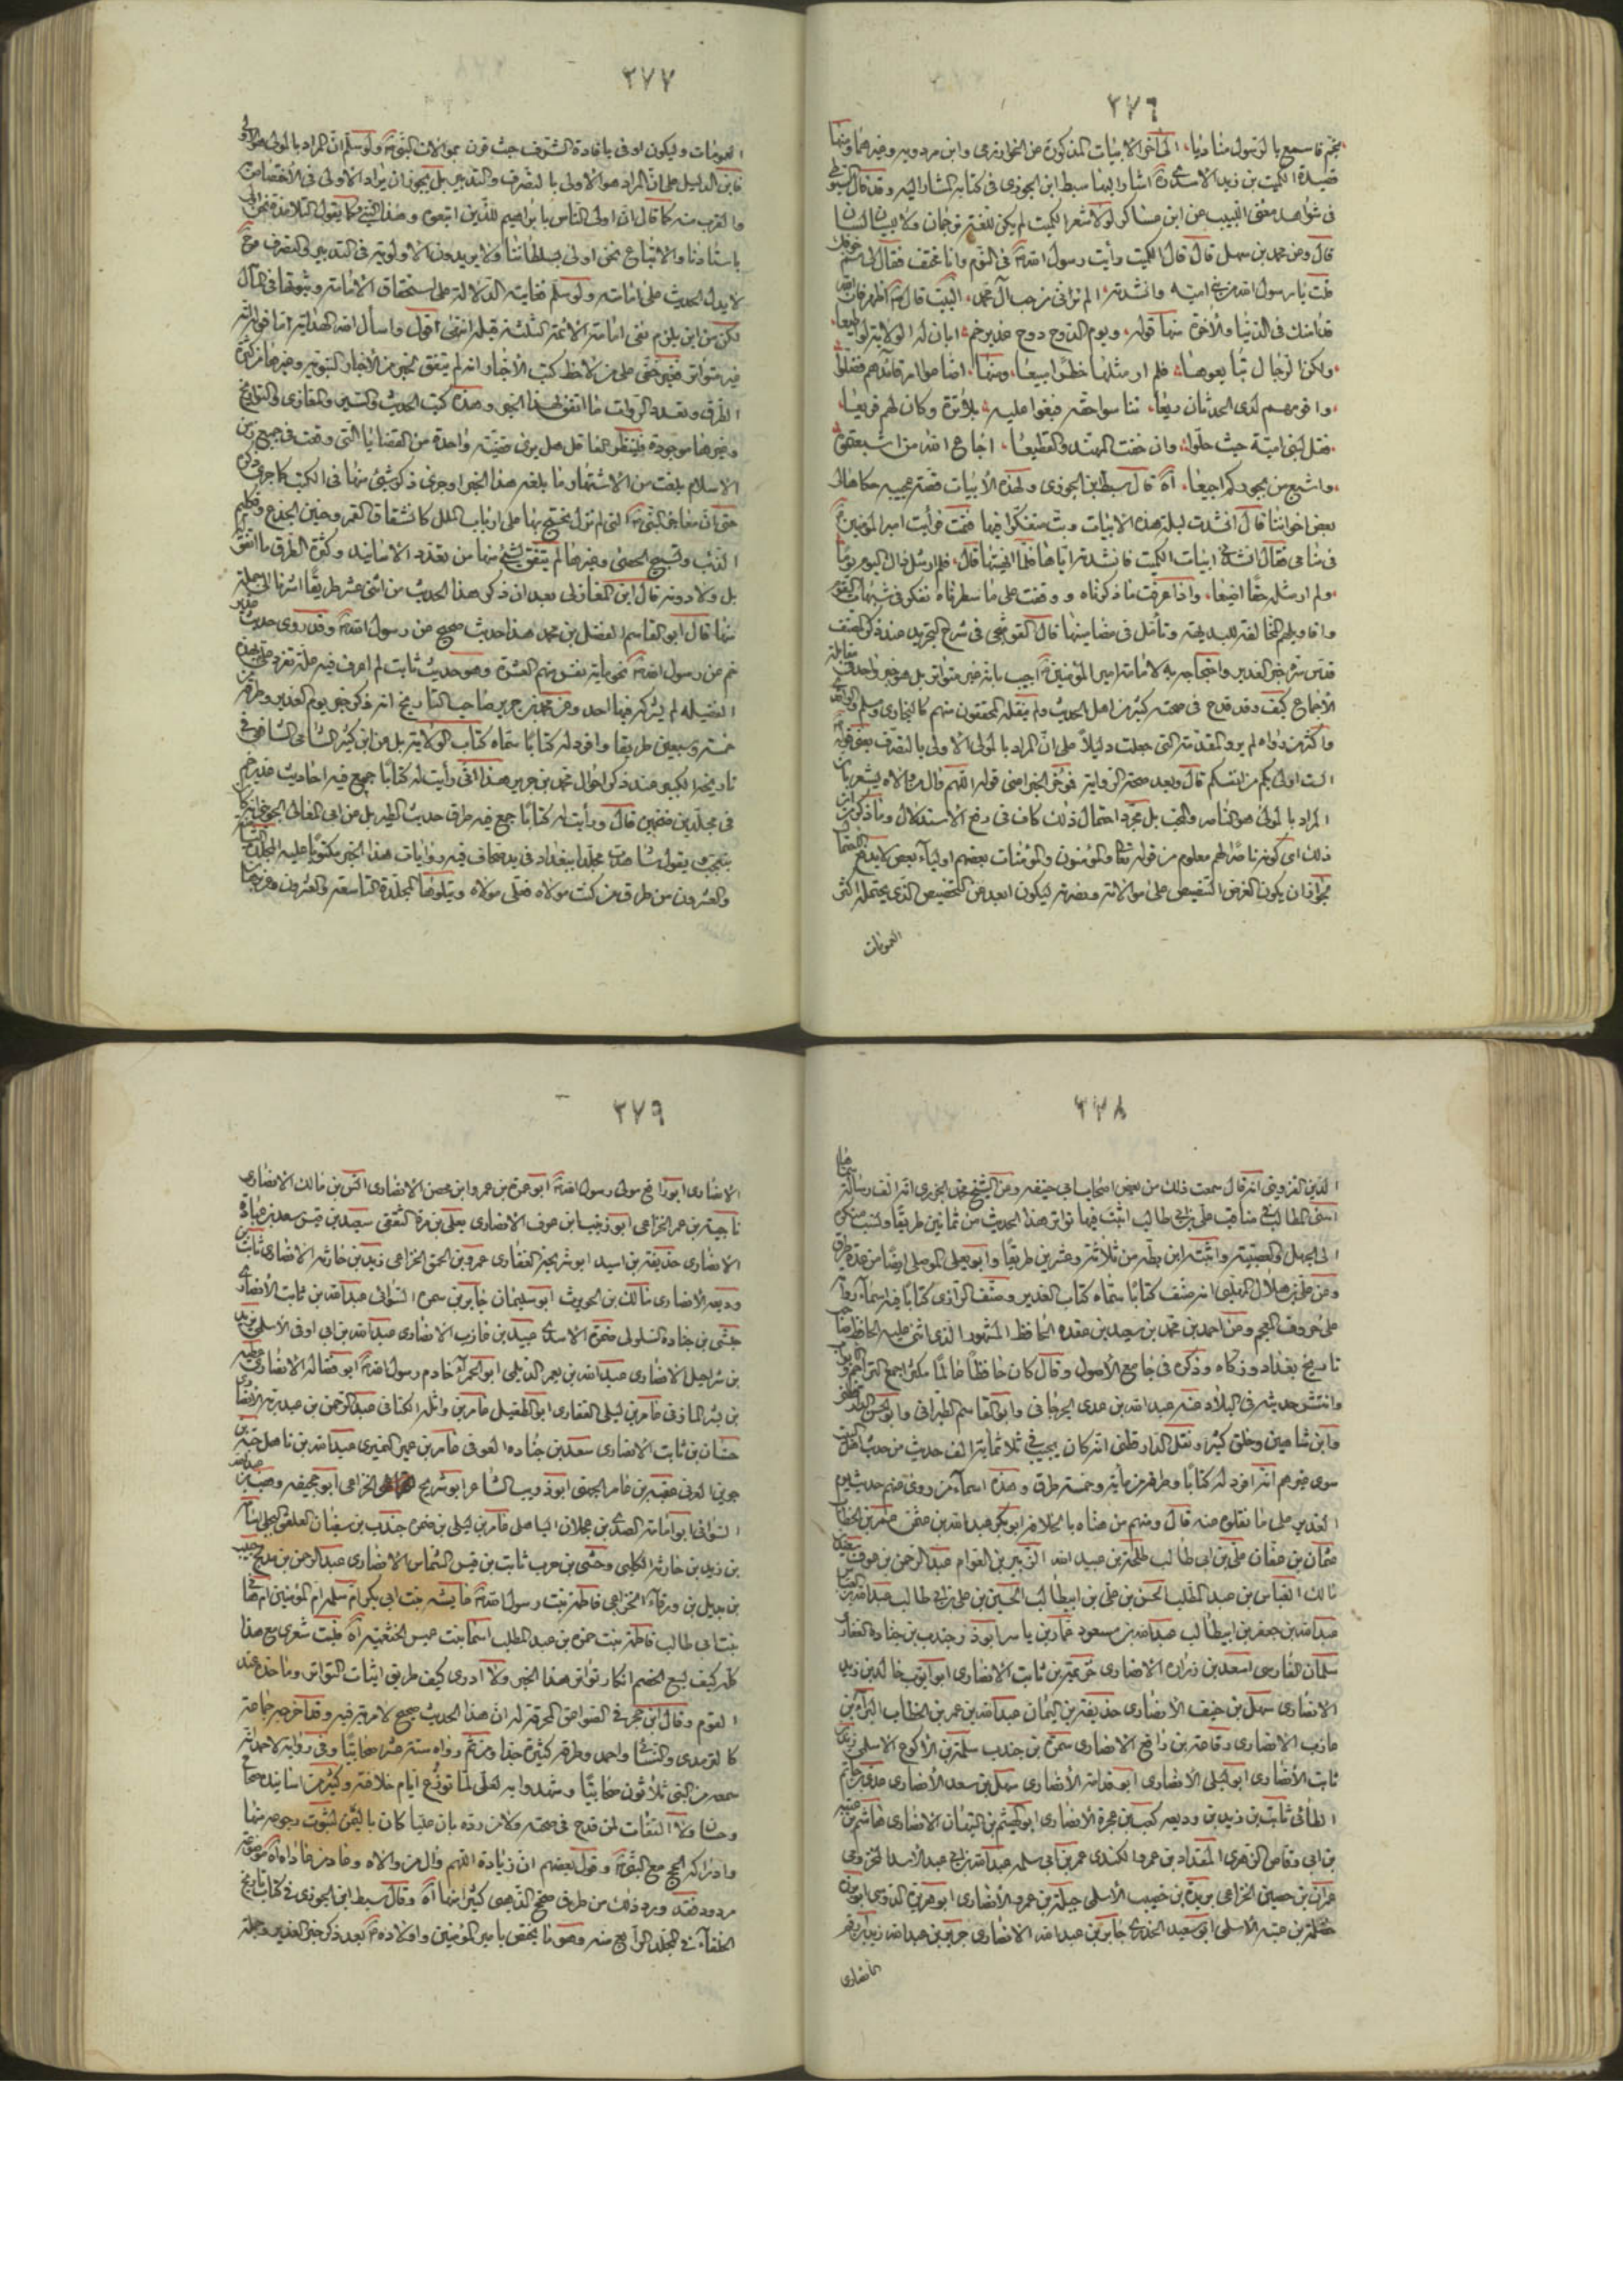 ٣٧٦
بخم فاسمع بالرسول مناديا الى آخر الابيات المذكورة عن الخوارزمى وابن مردويه وغيرهما ومنها
قصيدة الكميت بن زيد الاسدى اشار اليها سبط ابن الجوزى فى كتابه المشار اليه وقد قال السيوطى
فى شواهد مغنى اللبيب عن ابن عساكر لولا شعر الكميت لم يكن للغة ترجمان ولا للبيان لسان
قال وعن محمد بن سهل قال قال الكميت رأيت رسول الله ص فى النوم وانا مختف فقال لى مم خوفك
قلت يا رسول الله من بنى اميه وانشدته الم ترانى من حب آل محمد البيت قال ص اظهر فان الله
قد امنك فى الدنيا والآخرة منها قوله ويوم الدوح دوح غدير خم ابان له الولاية لو اطيعا
ولكن الرجال تبايعوها فلم ار مثلها خطرا مبيعا ومنها اضاعوا امر قائدهم فضلوا
واقومهم لدى الحدثان ريعا تناسوا حقه فبغوا عليه بلا ترة وكان لهم قريعا
فقل لبنى امية حيث حلوا وان خفت المهند والقطيعا اجاع الله من اشبعتموه
واشبع من بجوركم اجيعا آه قال سبط ابن الجوزى ولهذه الأبيات قصة عجيبه حكاها لى
بعض اخواننا قال انشدت ليلة هذه الابيات وبت متفكرا فيها فنمت فرأيت امير المؤمنين ع
فى منامى فقال انشدنى ابيات الكميت فانشدته اياها فلما انهيتها قال فلم ار مثل ذاك اليوم يوما
ولم ار مثله حقا اضيعا واذا عرفت ما ذكرناه ووقفت على ما سطرناه تفكر فى شبهات القوم
واقاويلهم المخالفة للبديهة وتأمل فى مضامينها قال القوشجى فى شرح التجريد عند ذكر المصنف
قدس سره خبر الغدير واحتجاجه به لامامة امير المؤمنين ع اجيب بانه غير متواتر بل هو خبر واحد فى مقابلة
الاجماع كيف وقد قدح فى صحته كثير من اهل الحديث ولم ينقله المحققون منهم كالبخارى ومسلم والواقدى
واكثر من رواه لم يرو المقدمة التى جعلت دليلا على ان المراد بالمولى الأولى بالتصرف يعنى قوله
الست اولى بكم من انفسكم قال وبعد صحة الرواية فمؤخر الخبر اعنى قوله اللهم وال من والاه يشعر بان
المراد بالمولى هو الناصر والمحب بل مجرد احتمال ذلك كاف فى دفع الاستدلال وما ذكر من ان
ذلك اى كونه ناصرا لهم معلوم من قوله تعالى والمؤمنون والمؤمنات بعضهم اولياء بعض لا يدفع الاحتمال
لجواز ان يكون الغرض التنصيص على موالاته ونصرته ليكون ابعد عن التخصيص الذى يحتمله اكثر
العمومات
٣٧٧
العمومات وليكون اوفى بافادة الشرف حيث قرن بموالات النبى ص ولو سلم ان المراد بالمولى هو الاولى
فاين الدليل على ان المراد هو الاولى بالتصرف والتدبير بل يجوز ان يراد الاولى فى الاختصاص به
والقرب منه كما قال ان اولى الناس بابراهيم للذين اتبعوه وهذا النبى وكما يقول التلامذة نحن اولى
باستادنا والاتباع نحن اولى بسلطاننا ولا يريدون الاولوية فى التدبير والتصرف وح
لا يدل الحديث على امامته ولو سلم فغايته الدلالة على استحقاق الامامة وثبوتها فى المآل
لكن من اين يلزم نفى امامة الائمة الثلثة قبله انتهى اقول واسأل الله الهداية اما قوله انه
غير متواتر فغير خفى على من لاحظ كتب الأخبار انه لم يتفق لخبر من الأخبار النبوية وغيرها من كثرة
الطرق وتعدد الروات ما اتفق لهذا الخبر وهذه كتب الحديث والسير والمغازى والتواريخ
وغيرها موجودة فلينظر العاقل هل يرى قضية واحدة من القضايا التى وقعت فى جميع زمن
الاسلام بلغت من الاشتهار ما بلغه هذا الخبر او جرى ذكر شئ منها فى الكتب كما جرى ذكره
حتى ان معاجز النبى ص التى لم تزل يحتج بها على ارباب الملل كانشقاق القمر وحنين الجذع وتكليم
الذئب وتسبيح الحصى وغيرها لم يتفق لشئ منها من تعدد الاسانيد وكثرة الطرق ما اتفق له
بل ولا دونه قال ابن المغازلى بعد ان ذكر هذا الحديث من اثنى عشر طريقا اشرنا الى جملة
منها قال ابو القاسم الفضل بن محمد هذا حديث صحيح عن رسول الله ص وقد روى حديث غدير
خم عن رسول الله ص نحو مأية نفس منهم العشرة وهو حديث ثابت لم اعرف فيه علة تفرد على ع بهذه
الفضيلة لم يشركه فيها احد وعن محمد بن جرير صاحب التاريخ انه ذكر خبر يوم الغدير وطرقه من
خمسة وسبعين طريقا وافرد له كتابا سماه كتاب الولاية بل عن ابن كثير الشامى الشافعى فى
تاريخه الكبير عند ذكر احوال محمد بن جرير هذا انى رأيت له كتابا جمع فيه احاديث غدير خم
فى مجلدين ضخمين قال ورأيت له كتابا جمع فيه طرق حديث الطير بل عن ابى المعالى الجوينى انه كان
يتعجب يقول شاهدت مجلدا ببغداد فى يد صحاف فيه روايات هذا الخبر مكتوبا عليه المجلدة الثامنة
والعشرون من طرق من كنت مولاه فعلى مولاه ويتلوها المجلدة التاسعة والعشرون وعن ضياء
٣٧٨
الدين القزوينى انه قال سمعت ذلك من بعض اصحاب ابى حنيفه وعن الشيخ محمد الجزرى انه الف رسالة سماها
اسنى المطالب فى مناقب على بن ابى طالب اثبت فيها تواتر هذا الحديث من ثمانين طريقا ونسب منكره
الى الجهل والعصبية واثبته ابن بطه من ثلاثة وعشرين طريقا وابو يعلى الموصلى ايضا من عدة طرق
وعن على بن هلال المهلبى انه صنف كتابا سماه كتاب الغدير وصنف الرازى كتابا فيه اسماء رواته
على حروف المعجم وعن احمد بن محمد بن سعيد بن عقده الحافظ المشهور الذى اثنى عليه الحافظ صاحب
تاريخ بغداد وزكاه وذكره فى جامع الأصول وقال كان حافظا عالما مكثرا جمع التراجم والابواب
وانتشر حديثه فى البلاد عنه عبدالله بن عدى الجرجانى وابو القاسم الطبرانى وابو الحسن الدارقطنى
وابن شاهين وخلق كثير ونقل الدارقطنى انه كان يجيب فى ثلاثمائة الف حديث من حديث اهل البيت
سوى غيرهم انه افرد له كتابا وطرقه من مأية وخمسة طرق وهذه اسماء من روى عنهم حديث يوم
الغدير على ما نقلوه عنه قال ومنهم من هناه بالخلافة ابو بكر عبد الله بن عثمن عمر بن الخطاب
عثمان بن عفان على بن ابى طالب طلحة بن عبيد الله الزبير بن العوام عبد الرحمن بن عوف سعد بن
مالك العباس بن عبد المطلب الحسن بن على بن ابيطالب الحسين بن على بن ابى طالب عبدالله بن العباس
عبدالله بن جعفر بن ابيطالب عبدالله بن مسعود عمار بن ياسر ابوذر وجندب بن جنادة الغفارى
سلمان الفارسى اسعد بن زراره الانصارى خزيمة بن ثابت الانصارى ابو ايوب خالد بن زيد
الانصارى سهل بن حنيف الأنصارى حذيفة بن اليمان عبدالله بن عمر بن الخطاب البراء بن
عازب الانصارى رفاعة بن رافع الانصارى سمرة بن جندب سلمة بن الأكوع الاسلمى زيد بن
ثابت الأنصارى ابو ليلى الأنصارى ابو قدامة الأنصارى سهل بن سعد الأنصارى عدى بن حاتم
الطائى ثابت بن زيد بن وديعه كعب بن عجرة الأنصارى ابو الهيثم بن التيهان الانصارى هاشم بن عتبة
بن ابى وقاص الزهرى المقداد بن عمرو الكندى عمر بن ابى سلمه عبدالله بن ابى عبد الأسد المخزومى
عمران بن حصين الخزاعى بريدة بن خصيب الأسلمى جبلة بن عمرو الأنصارى ابو هريرة الدوسى ابو برزة
نضلة بن عتبه الاسلمى ابو سعيد الخدرى جابر بن عبدالله الانصارى جرير بن عبدالله زيد بن ارقم
الأنصارى
٣٧٩
الانصارى ابو رافع مولى رسول الله ص ابو عمرة بن عمرو ابن محصن الانصارى انس بن مالك الانصارى
ناجية بن عمر الخزاعى ابو زينب ابن عوف الانصارى يعلى بن مرة الثقفى سعيد بن قيس سعد بن عبادة
الانصارى حذيفة بن اسيد ابو شريحة الغفارى عمرو بن الحمق الخزاعى زيد بن حارثه الانصارى ثابت بن
وديعه الأنصارى مالك بن الحويرث ابو سليمان جابر بن سمرة السوائى عبدالله بن ثابت الأنصارى
حبشى بن جناده السلولى ضمرة الاسدى عبيد بن عازب الانصارى عبدالله بن ابى اوفى الأسلمى زيد
بن شراحيل الانصارى عبدالله بن يعمر الديلمى ابو الحمراء خادم رسول الله ص ابو فضاله الانصارى عطية
بن بشر المازنى عامر بن ليلى الغفارى ابو الطفيل عامر بن واثله الكنانى عبد الرحمن بن عبد ربه الأنصارى
حسان بن ثابت الانصارى سعد بن جناده العوفى عامر بن عمير النميرى عبدالله بن ياميل حبة بن
جوين العرنى عقبة بن عامر الجهنى ابو ذويب الشاعر ابو شريح الخزاعى ابو جحيفه وهب بن عبدالله
السوائى ابو امامة الصدى بن عجلان الباهلى عامر بن ليلى بن ضمرة جندب بن سفيان العلقى البجلى اسامة
بن زيد بن حارثه الكلبى وحشى بن حرب ثابت بن قيس الشماس الانصارى عبد الرحمن بن مدلج حبيب
بن بديل بن ورقاء الخزاعى فاطمة بنت رسول الله ص عايشه بنت ابى بكر ام سلمه ام المؤمنين ام هانى
بنت ابى طالب فاطمة بنت حمزة بن عبد المطلب اسما بنت عميس الخثعميه آه فليت شعرى مع هذا
كله كيف يسع الخصم انكار تواتر هذا الخبر ولا ادرى كيف طريق اثبات التواتر وما حده عند
القوم وقال ابن حجر فى الصواعق المحرقة له ان هذا الحديث صحيح لا مرية فيه وقد اخرجه جماعة
كالترمدى والنسائى واحمد وطرقه كثيرة جدا ومن ثم رواه ستة عشر صحابيا وفى رواية لاحمد انه
سمعه من النبى ثلاثون صحابيا وشهدوا به لعلى لما نوزع ايام خلافته وكثير من اسانيده صحاح
وحسان ولا التفات لمن قدح فى صحته ولا لمن رده بان عليا كان باليمن لثبوت رجوعه منها
وادراكه الحج مع النبى ص وقول بعضهم ان زيادة اللهم وال من والاه وعاد من عاداه آه موضوعة
مردود فقد ورد ذلك من طرق صحح الذهبى كثيرا منها آه وقال سبط ابن الجوزى فى كتاب تاريخ
الخلفاء فى المجلد الرابع منه وهو ما يختص بامير المؤمنين واولاده ع بعد ذكر خبر الغدير وجملة